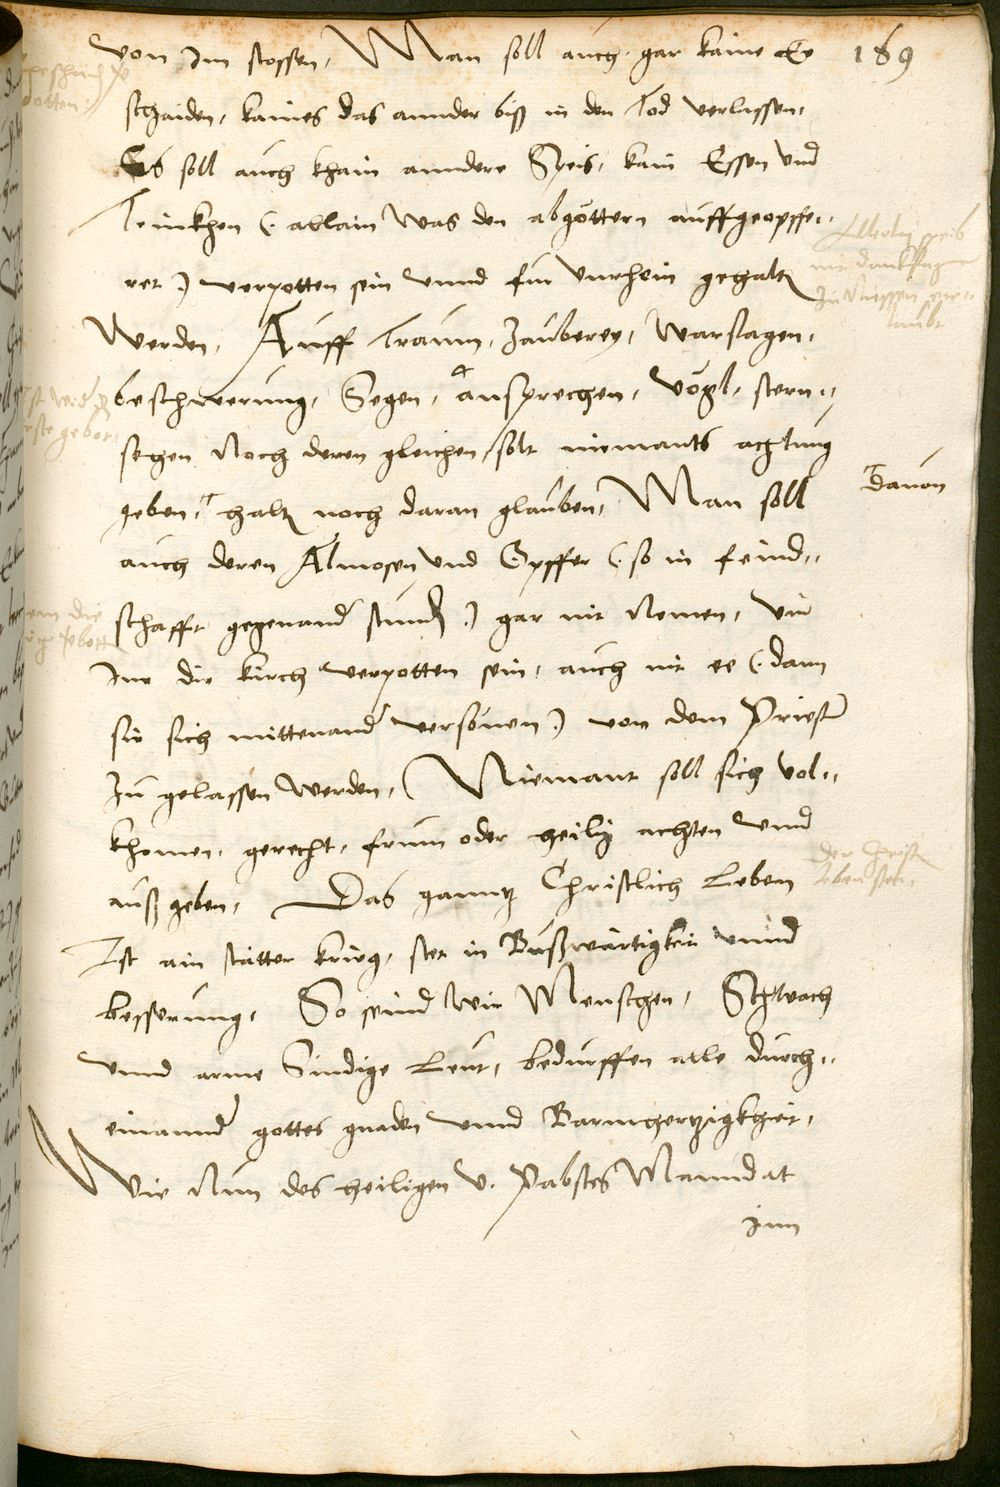 189
von Im stossen, Man soll auch gar kaine Ee
schaiden, kaines das annder biß in den Tod verlassen,
Es soll auch khain anndere Speis, kain Essen vnd
Trinkhen (allain was den abgöttern auffgeopffe„
ret) verpotten sein vnnd für vnrhein gehalten
werden, Auff Traum, Zauberey, warsagen,
beschwerung, Segen, ansprechen, vögl, stern„
sehen Noch deren gleichen, solt niemants achtung
geben, halten noch daran glauben, Man soll
davon
auch deren Almosen vnd Opffer (so in feind„
schafft gegenander stunden) gar nit Nemen, vnd
Ine die kirch verpotten sein, auch nit ee (dann
sie sich mittenander versönen) von dem Priester
Zu gelassen werden, Niemant soll sich vol„
khomen, gerecht, frum oder heilig achten vnnd
auß geben, Das ganntz Christlich Leben
Ist ain stätter krieg, stet in Bußwärtigkeit vnnd
besserung, So seind wir Menschen, Schwach
vnnd arme Sündige Leut, bedürffen alle durch„
einannder gottes gnaden vnnd Barmhertzigkheit,
Wie Nun des heiligen v. Pabstes Manndat
Inn
Allerlay speis
mit danksagen
Zu Niessen er„
laubt
der Christen
leben stet